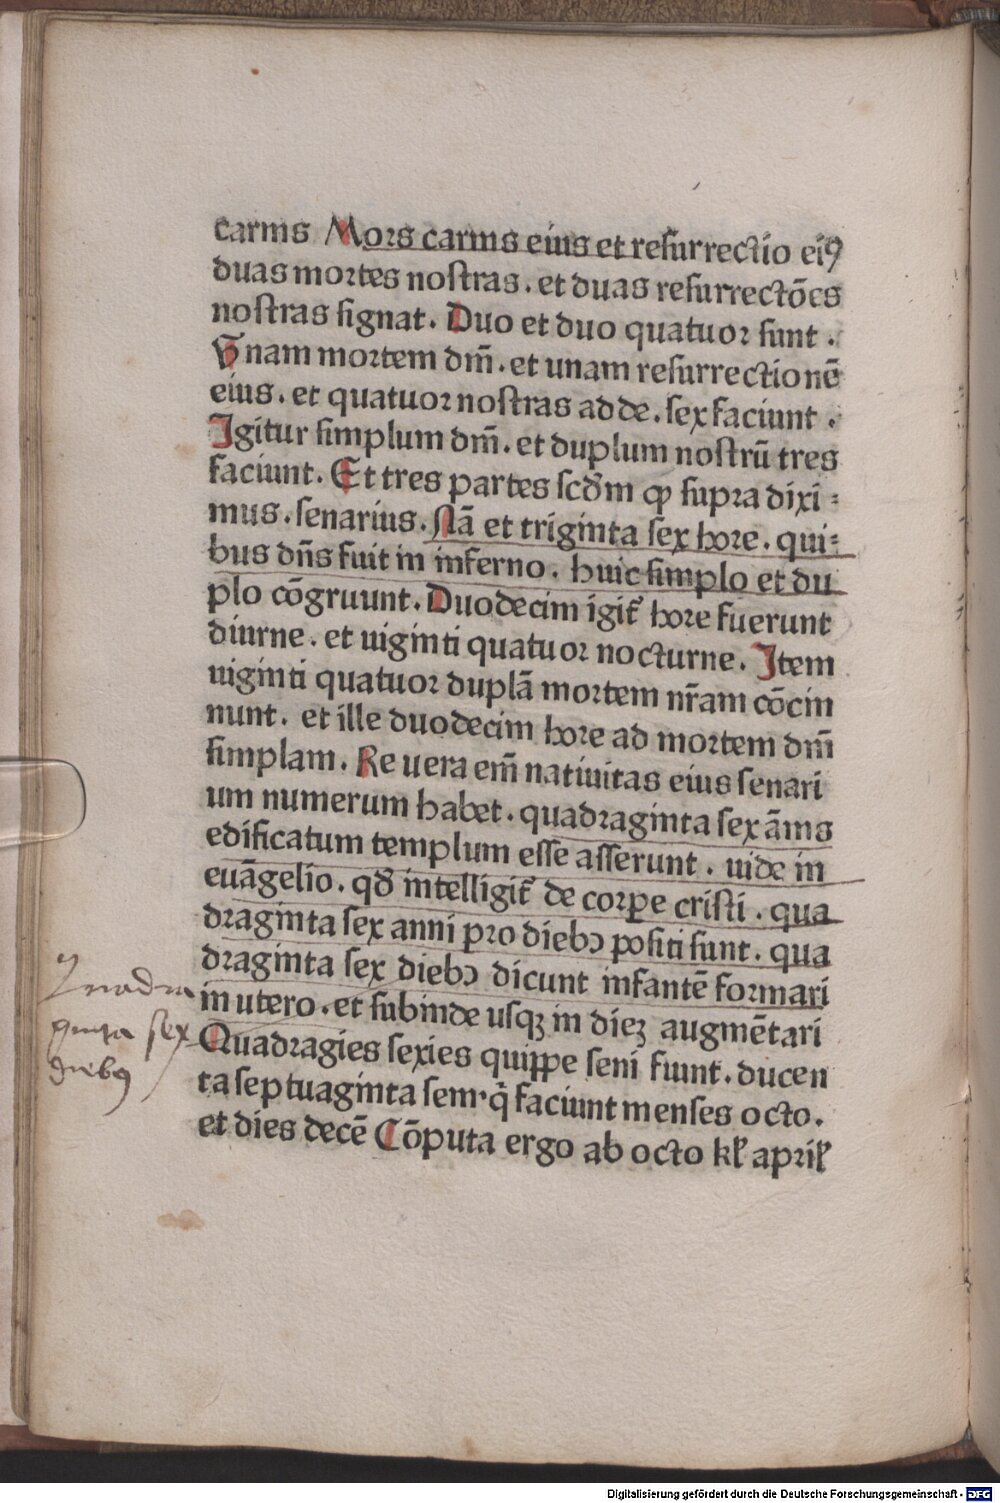 carnis Mors carnis eius et resurrectio eiꝰ
duas mortes nostras . et duas resurrectōes
nostras signat . Duo et duo quatuor sunt .
Vnam mortem dn̄i . et unam resurrectionē
eius . et quatuor nostras adde . sex faciunt .
Igitur simplum dn̄i . et duplum nostrū tres
faciunt . Et tres partes scd̄m qp̄ supra dixi =
mus . senarius . Nā et triginta sex hore . qui=
bus dn̄s fuit in inferno . huic simplo et du
plo cōgruunt . Duodecim igit᷑ hore fuerunt
diurne . et uiginti quatuor nocturne . Item
uiginti quatuor duplā mortem nr̄am cōcin
nunt . et ille duodecim hore ad mortem dn̄i
simplam . Re uera em̄ natiuitas eius senari
um numerum habet . quadraginta sex ānis
edificatum templum esse asserunt . uide in
euāgelio . qd̄ intelligit᷑ de corꝑe cristi . qua
draginta sex anni pro diebꝫ positi sunt . qua
draginta sex diebꝫ dicunt infantē formari
in utero . et subinde usqꝫ in dieꝫ augmētari
Quadragies sexies quippe seni fiunt . ducen
ta septuaginta sem · q̄ faciunt menses octo .
et dies decē Cōputa ergo ab octo kł april
Quadra
ginta sex
diebꝰ
Digitalisierung gefördert durch die Deutsche Forschungsgemeinschaft - DFG